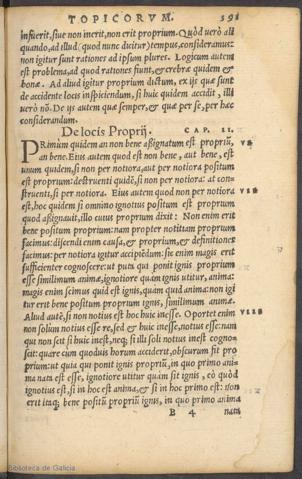 TOPICORVM. 391
infuerit, siue non inerit, non erit proprium. Quòd verò ali
quando, ad illud (quod nunc dicitur) tempus, consideramus:
non igitur sunt rationes ad ipsum plures. Logicum autem
est problema, ad quod rationes fiunt, & crebræ quidem &
bonæ. Ad aliud igitur proprium dictum, ex ijs quæ sunt
de accidente locis inspiciendum, si huic quidem accidit, illi
verò nō. De ijs autem quæ semper, & quæ per se, per hæc
considerandum.
De locis Proprij. CAP. II.
PRimum quidem an non bene aßignatum est propriū, VI
an bene. Eius autem quod est non bene, aut bene, est
unum quidem, si non per notiora, aut per notiora positum
est proprium: destruenti quidē, si non per notiora: at con-
struenti, si per notiora. Eius autem quod non per notiora VII
est, hoc quidem si omnino ignotius positum est proprium
quod aßignauit, illo cuius proprium dixit: Non enim erit
bene positum proprium: nam propter notitiam proprium
facimus: discendi enim causa, & proprium, & definitiones
facimus: per notiora igitur accipiēdum: sic enim magis erit
sufficienter cognoscere: ut puta qui ponit ignis proprium
esse simillimum animæ, ignotiore quàm ignis utitur, anima:
magis enim scimus quid est ignis, quàm quid anima: non igi
tur erit bene positum proprium ignis, simillimum animæ.
Aliud autē, si non notius est hoc huic inesse. Oportet enim VIII
non solùm notius esse re, sed & huic inesse, notius esse: nam
qui non scit si huic inest, neq; si illi soli notius inest cogno-
scit: quare cum quoduis horum acciderit, obscurum fit pro
prium: ut puta qui ponit ignis propriū, in quo primo ani
ma nata est esse, ignotiore utitur quàm sit ignis, eò quòd
ignotius est, si in hoc est anima, & si in hoc primo est: non
erit itaq; bene positū propriū ignis, in quo primo anima
B 4 nata
Biblioteca de Galicia